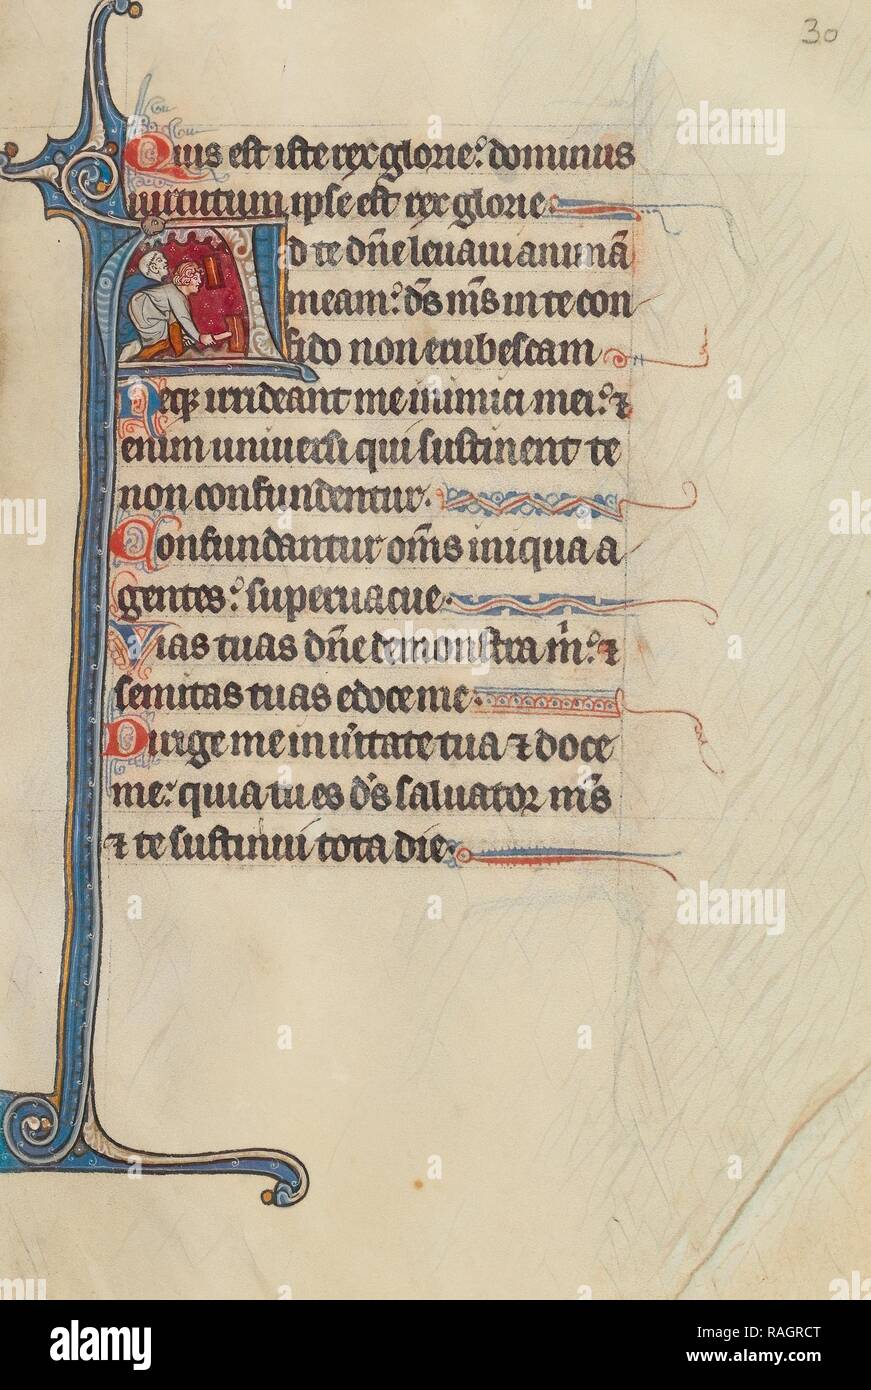 30
Quis est iste rex glorie: dominus
uirtutum ipse est rex glorie.
Ad te dñe leuaui animã
meam: ds ms in te con
fido non erubescam
Neq; irrideant me inimici mei: ⁊
enim uniuersi qui sustinent te
non confundentur.
Confundantur om̃s iniqua a
gentes: superuacue.
Vias tuas dñe demonstra m: ⁊
semitas tuas edoce me.
Dirige me in uĩtate tua ⁊ doce
me: quia tu es ds saluator ms
⁊ te sustinui tota die.
alamy
alamy
Image ID: RAGRCT
www.alamy.com